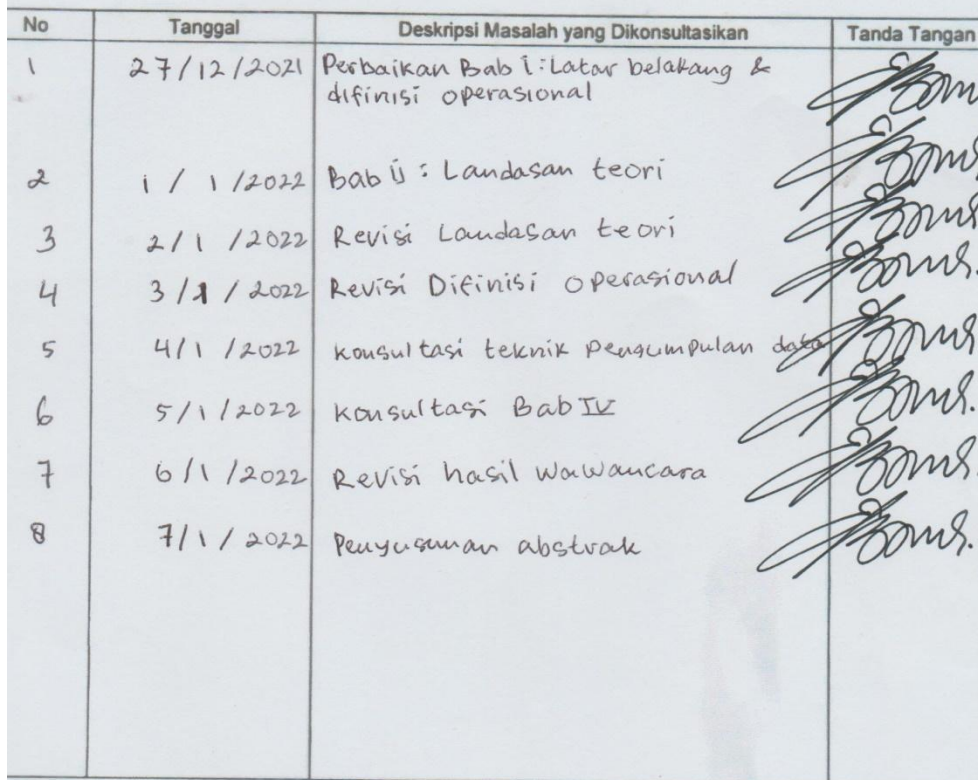 No Tanggal Deskripsi Masalah yang Dikonsultasikan Tanda Tangan
1 27/12/2021 Perbaikan Bab i: Latar belakang &
difinisi operasional
2 1/1/2022 Bab ii : Landasan teori
3 2/1/2022 Revisi Landasan teori
4 3/1/2022 Revisi Difinisi operasional
5 4/1/2022 konsultasi teknik pengumpulan data
6 5/1/2022 konsultasi Bab IV
7 6/1/2022 Revisi hasil wawancara
8 7/1/2022 Penyusunan abstrak